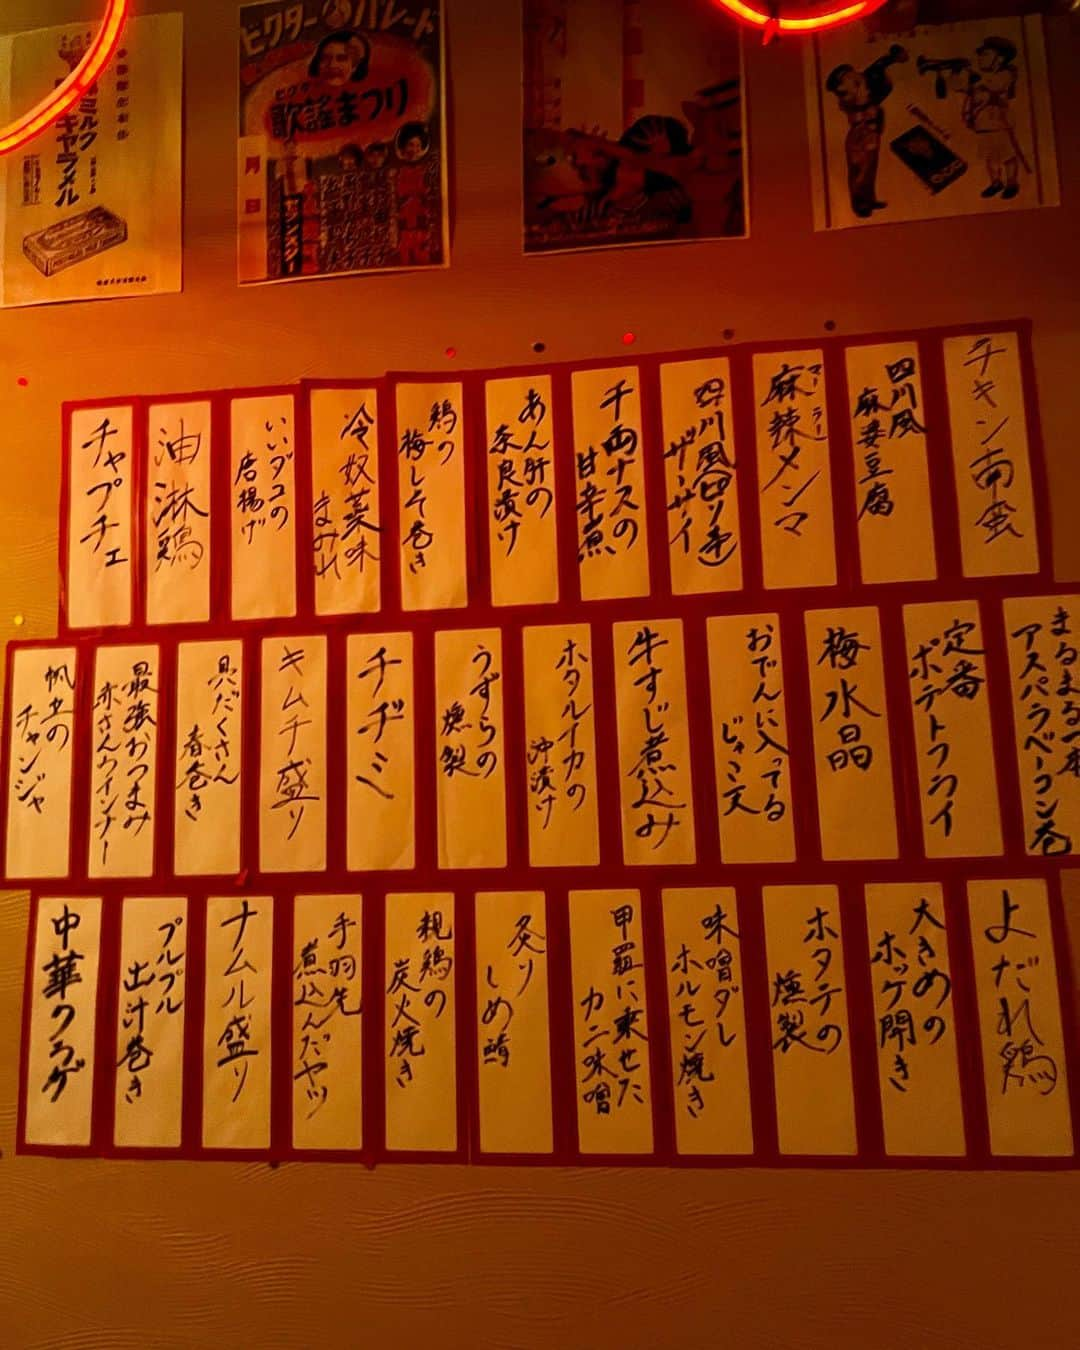 ビクターパレード
歌謡まつり
月
日
ミルク
キャラメル
チキン南蛮
四川風
麻婆豆腐
マーラー
麻辣メンマ
四川風(ピリ辛)
ザーサイ
千両ナスの
甘辛煮
あん肝の
奈良漬け
鶏の
梅しそ巻き
冷奴薬味
まみれ
いいダコの
唐揚げ
油淋鶏
チャプチェ
まるまる一本
アスパラベーコン巻
定番
ポテトフライ
梅水晶
おでんに入ってる
じゃこ天
牛すじ煮込み
ホタルイカの
沖漬け
うずらの
燻製
チヂミ
キムチ盛り
具だくさん
春巻き
最強おつまみ
赤さんウインナー
帆立の
チャンジャ
よだれ鶏
大きめの
ホッケ開き
ホタテの
燻製
味噌ダレ
ホルモン焼き
甲羅に乗せた
カニ味噌
炙り
しめ鯖
親鶏の
炭火焼き
手羽先
煮込んだヤツ
ナムル盛り
プルプル
出汁巻き
中華クラゲ